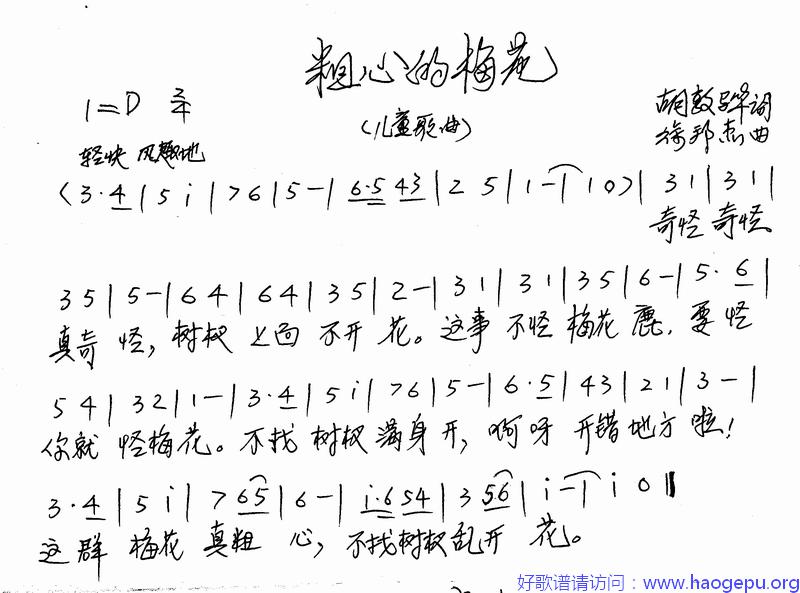 粗心的梅花
1=D 2/4
（儿童歌曲）
胡敦骅词
徐邦杰曲
轻快 风趣地
(3·4|5 i|76|5-|6·5 43|2 5|1-|10)|31|31|
奇怪 奇怪
35|5-|64|64|35|2-|31|31|35|6-|5·6|
真奇 怪，树杈 上面 不开 花。这事 不怪 梅花 鹿，要怪
54|32|1-|3·4|5i|76|5-|6·5|43|21|3-|
你就 怪梅花。不找 树杈 满身 开，啊呀 开错 地方 啦！
3·4|5 i|7 65|6-|i·6 54|3 56|i-|i 0‖
这群 梅花 真粗 心，不找树杈乱开 花。
好歌谱请访问：www.haogepu.org